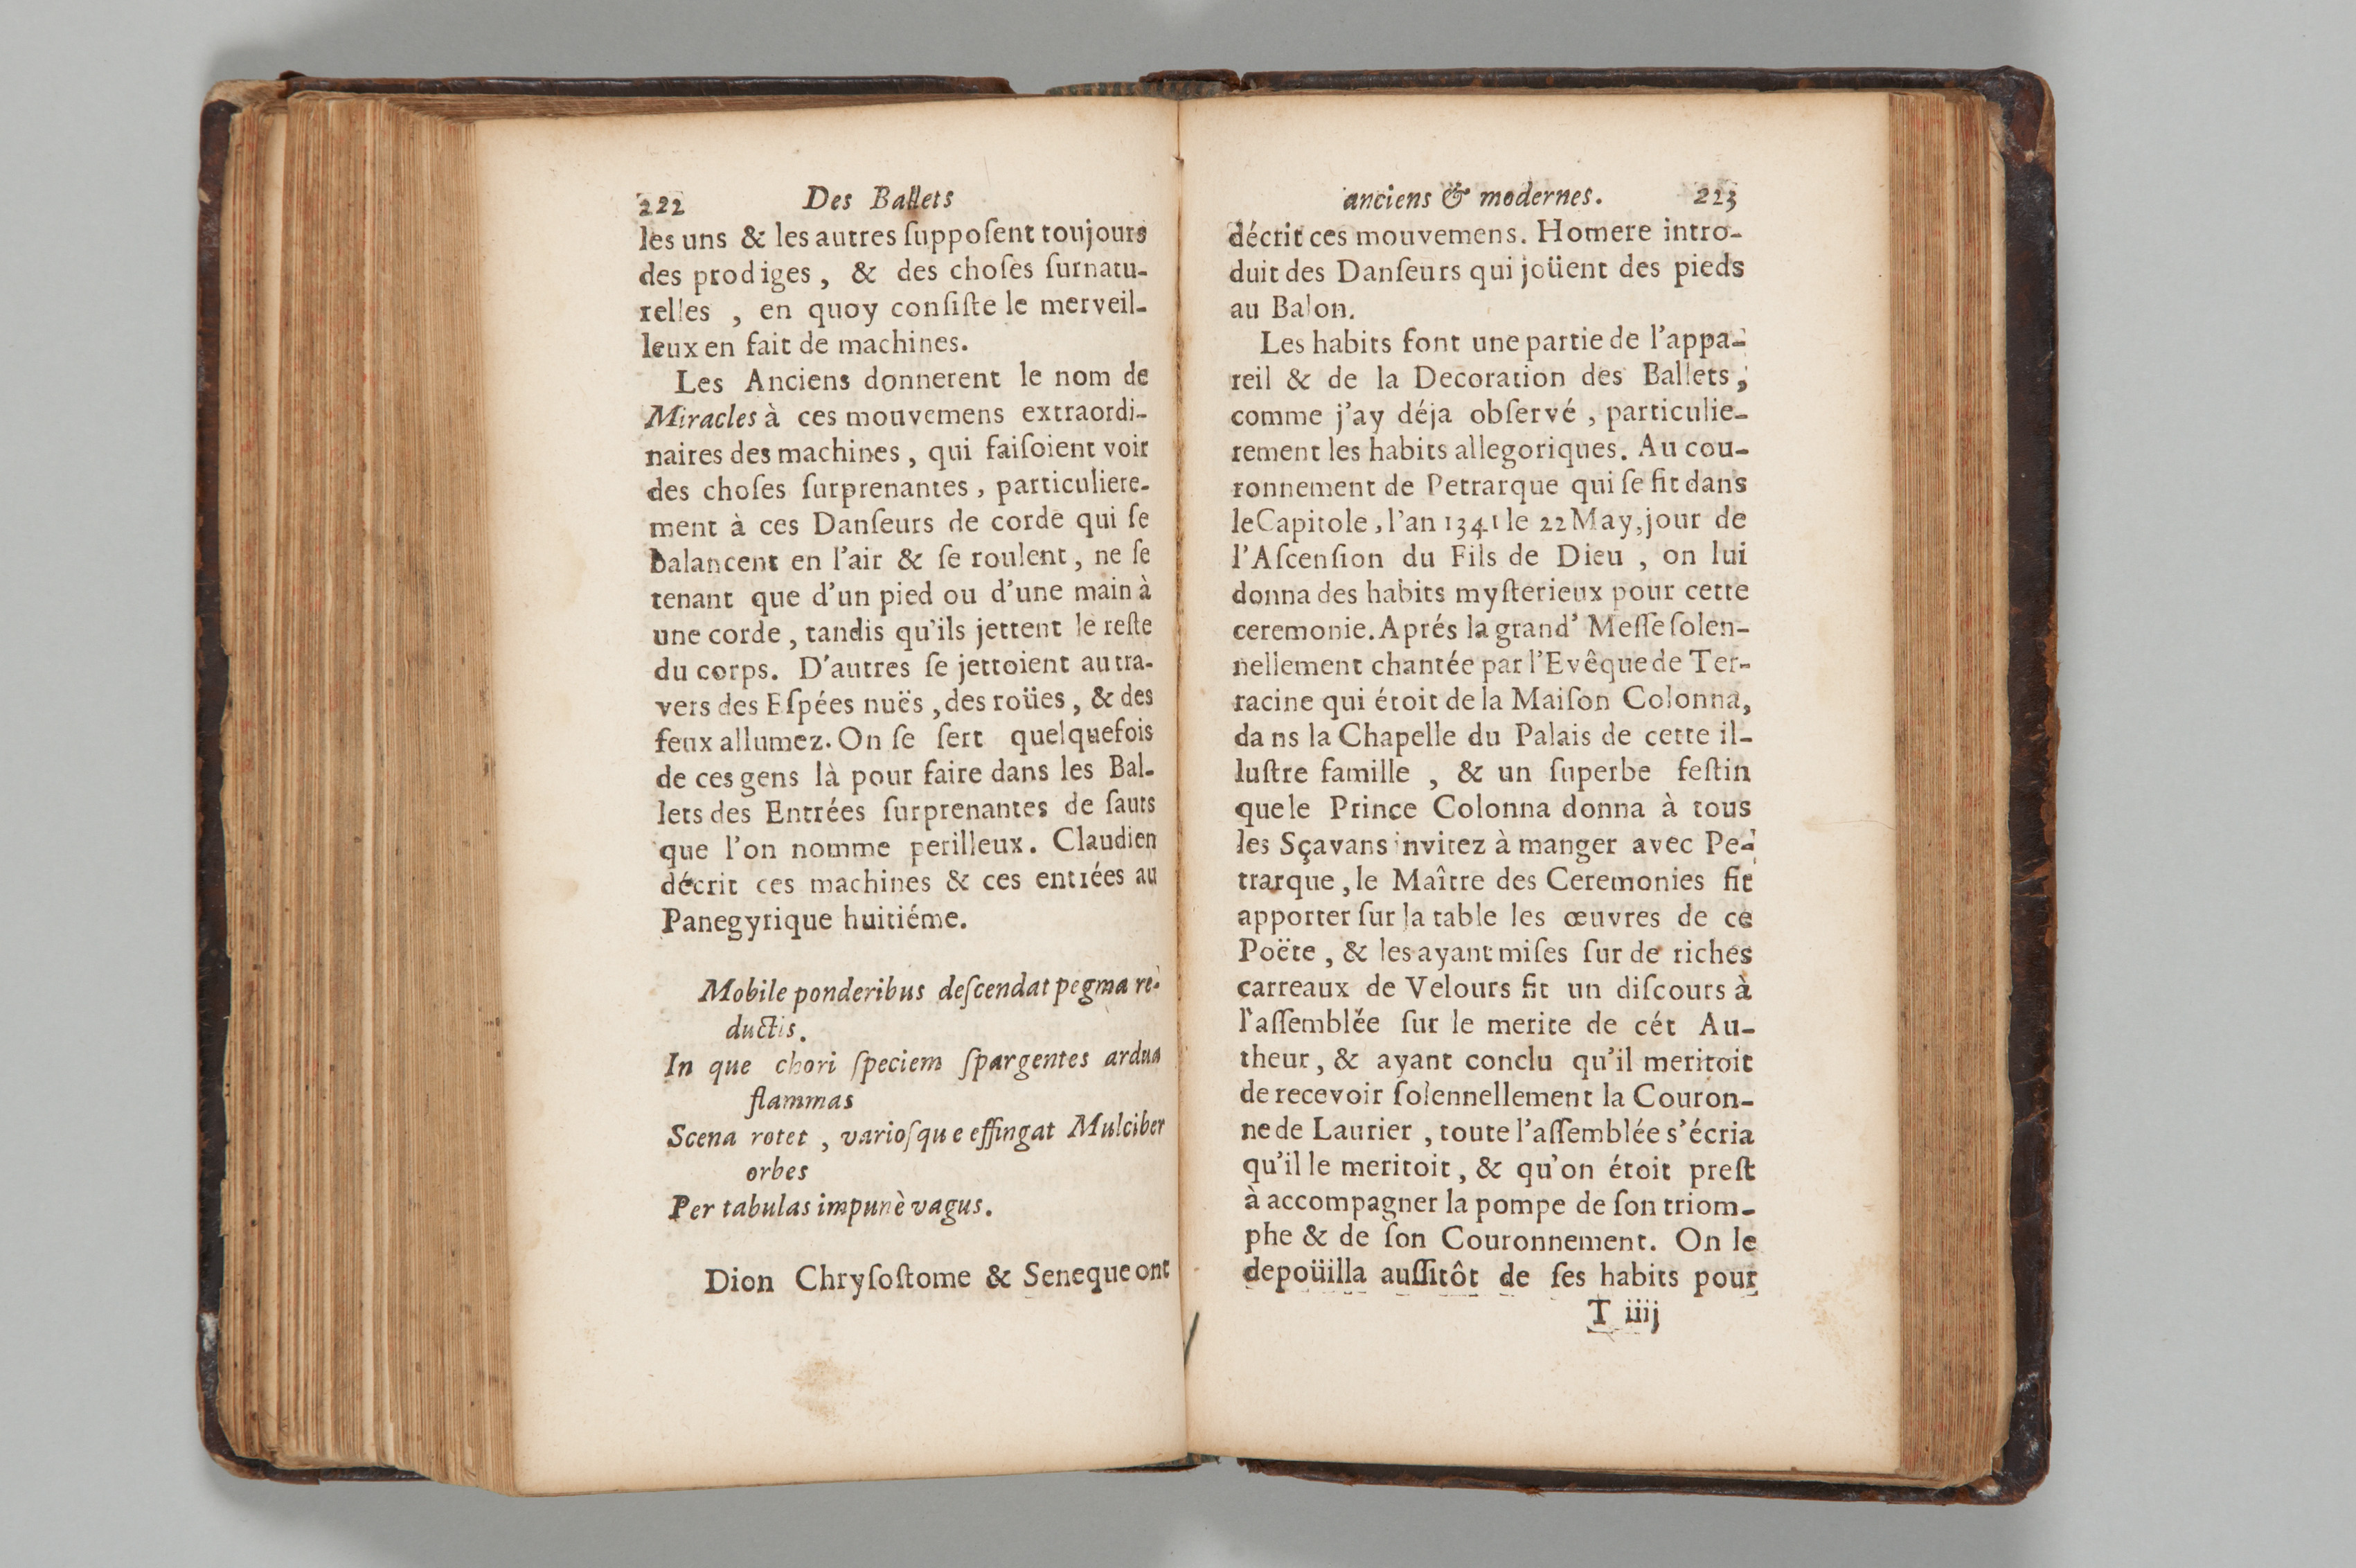 222 Des Ballets
les uns & les autres ſuppoſent toujours
des prodiges, & des choſes ſurnatu-
relles , en quoy conſiſte le merveil-
leux en fait de machines.
Les Anciens donnerent le nom de
Miracles à ces mouvemens extraordi-
naires des machines, qui faiſoient voir
des choſes ſurprenantes, particuliere-
ment à ces Danſeurs de corde qui ſe
balancent en l'air & ſe roulent, ne ſe
tenant que d'un pied ou d'une main à
une corde, tandis qu'ils jettent le reſte
du corps. D'autres ſe jettoient au tra-
vers des Eſpées nuës, des roües, & des
feux allumez. On ſe ſert quelquefois
de ces gens là pour faire dans les Bal-
lets des Entrées ſurprenantes de ſauts
que l'on nomme perilleux. Claudien
décrit ces machines & ces entrées au
Panegyrique huitiéme.
Mobile ponderibus deſcendat pegma re-
ductis.
In que chori ſpeciem ſpargentes ardua
flammas
Scena rotet, varioſque effingat Mulciber
orbes
Per tabulas impunè vagus.
Dion Chryſoſtome & Seneque ont
anciens & modernes. 223
décrit ces mouvemens. Homere intro-
duit des Danſeurs qui joüent des pieds
au Balon.
Les habits font une partie de l'appa-
reil & de la Decoration des Ballets,
comme j'ay déja obſervé, particulie-
rement les habits allegoriques. Au cou-
ronnement de Petrarque qui ſe fit dans
le Capitole, l'an 1341 le 22 May, jour de
l'Aſcenſion du Fils de Dieu, on lui
donna des habits myſterieux pour cette
ceremonie. Aprés la grand' Meſſe ſolen-
nellement chantée par l'Evêque de Ter-
racine qui étoit de la Maiſon Colonna,
dans la Chapelle du Palais de cette il-
luſtre famille, & un ſuperbe feſtin
que le Prince Colonna donna à tous
les Sçavans invitez à manger avec Pe-
trarque, le Maître des Ceremonies fit
apporter ſur la table les œuvres de ce
Poëte, & les ayant miſes ſur de riches
carreaux de Velours fit un diſcours à
l'aſſemblée ſur le merite de cét Au-
theur, & ayant conclu qu'il meritoit
de recevoir ſolennellement la Couron-
ne de Laurier, toute l'aſſemblée s'écria
qu'il le meritoit, & qu'on étoit preſt
à accompagner la pompe de ſon triom-
phe & de ſon Couronnement. On le
depoüilla auſſitôt de ſes habits pour
T iiij